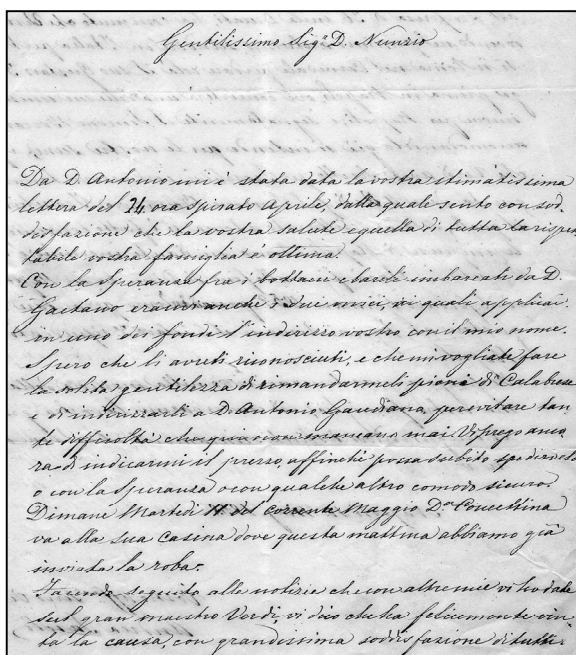 Gentilissimo Sigr. D. Nunzio
Da D. Antonio mi è stata data la vostra stimatissima
lettera del 24 ora spirato Aprile, dalla quale sento con sod-
disfazione che la vostra salute e quella di tutta la rispet-
tabile vostra famiglia è ottima.
Con la Speranza fra i bottacci e barili imbarcati da D.
Gaetano eranvi anche i due miei, ai quali applicai
in uno dei fondi l'indirizzo vostro con il mio nome.
Spero che li avreti riconosciuti, e che mi vogliate fare
la solita gentilezza di rimandarmeli pieni di Calabrese
e di indirizzarli a D. Antonio Gaudiano, per evitare tan-
te difficoltà che qui non mancano mai. Vi prego anco-
ra di indicarmi il prezzo, affinchè possa subito spedirvelo
o con la Speranza o con qualche altro comodo sicuro.
Dimane Martedì 11 del corrente Maggio Da. Concettina
va alla sua casina dove questa mattina abbiamo già
inviata la roba.
Facendo seguito alle notizie che con altre mie vi ho date
sul gran maestro Verdi, vi dico che ha felicemente vin-
ta la causa, con grandissima soddisfazione di tutti.